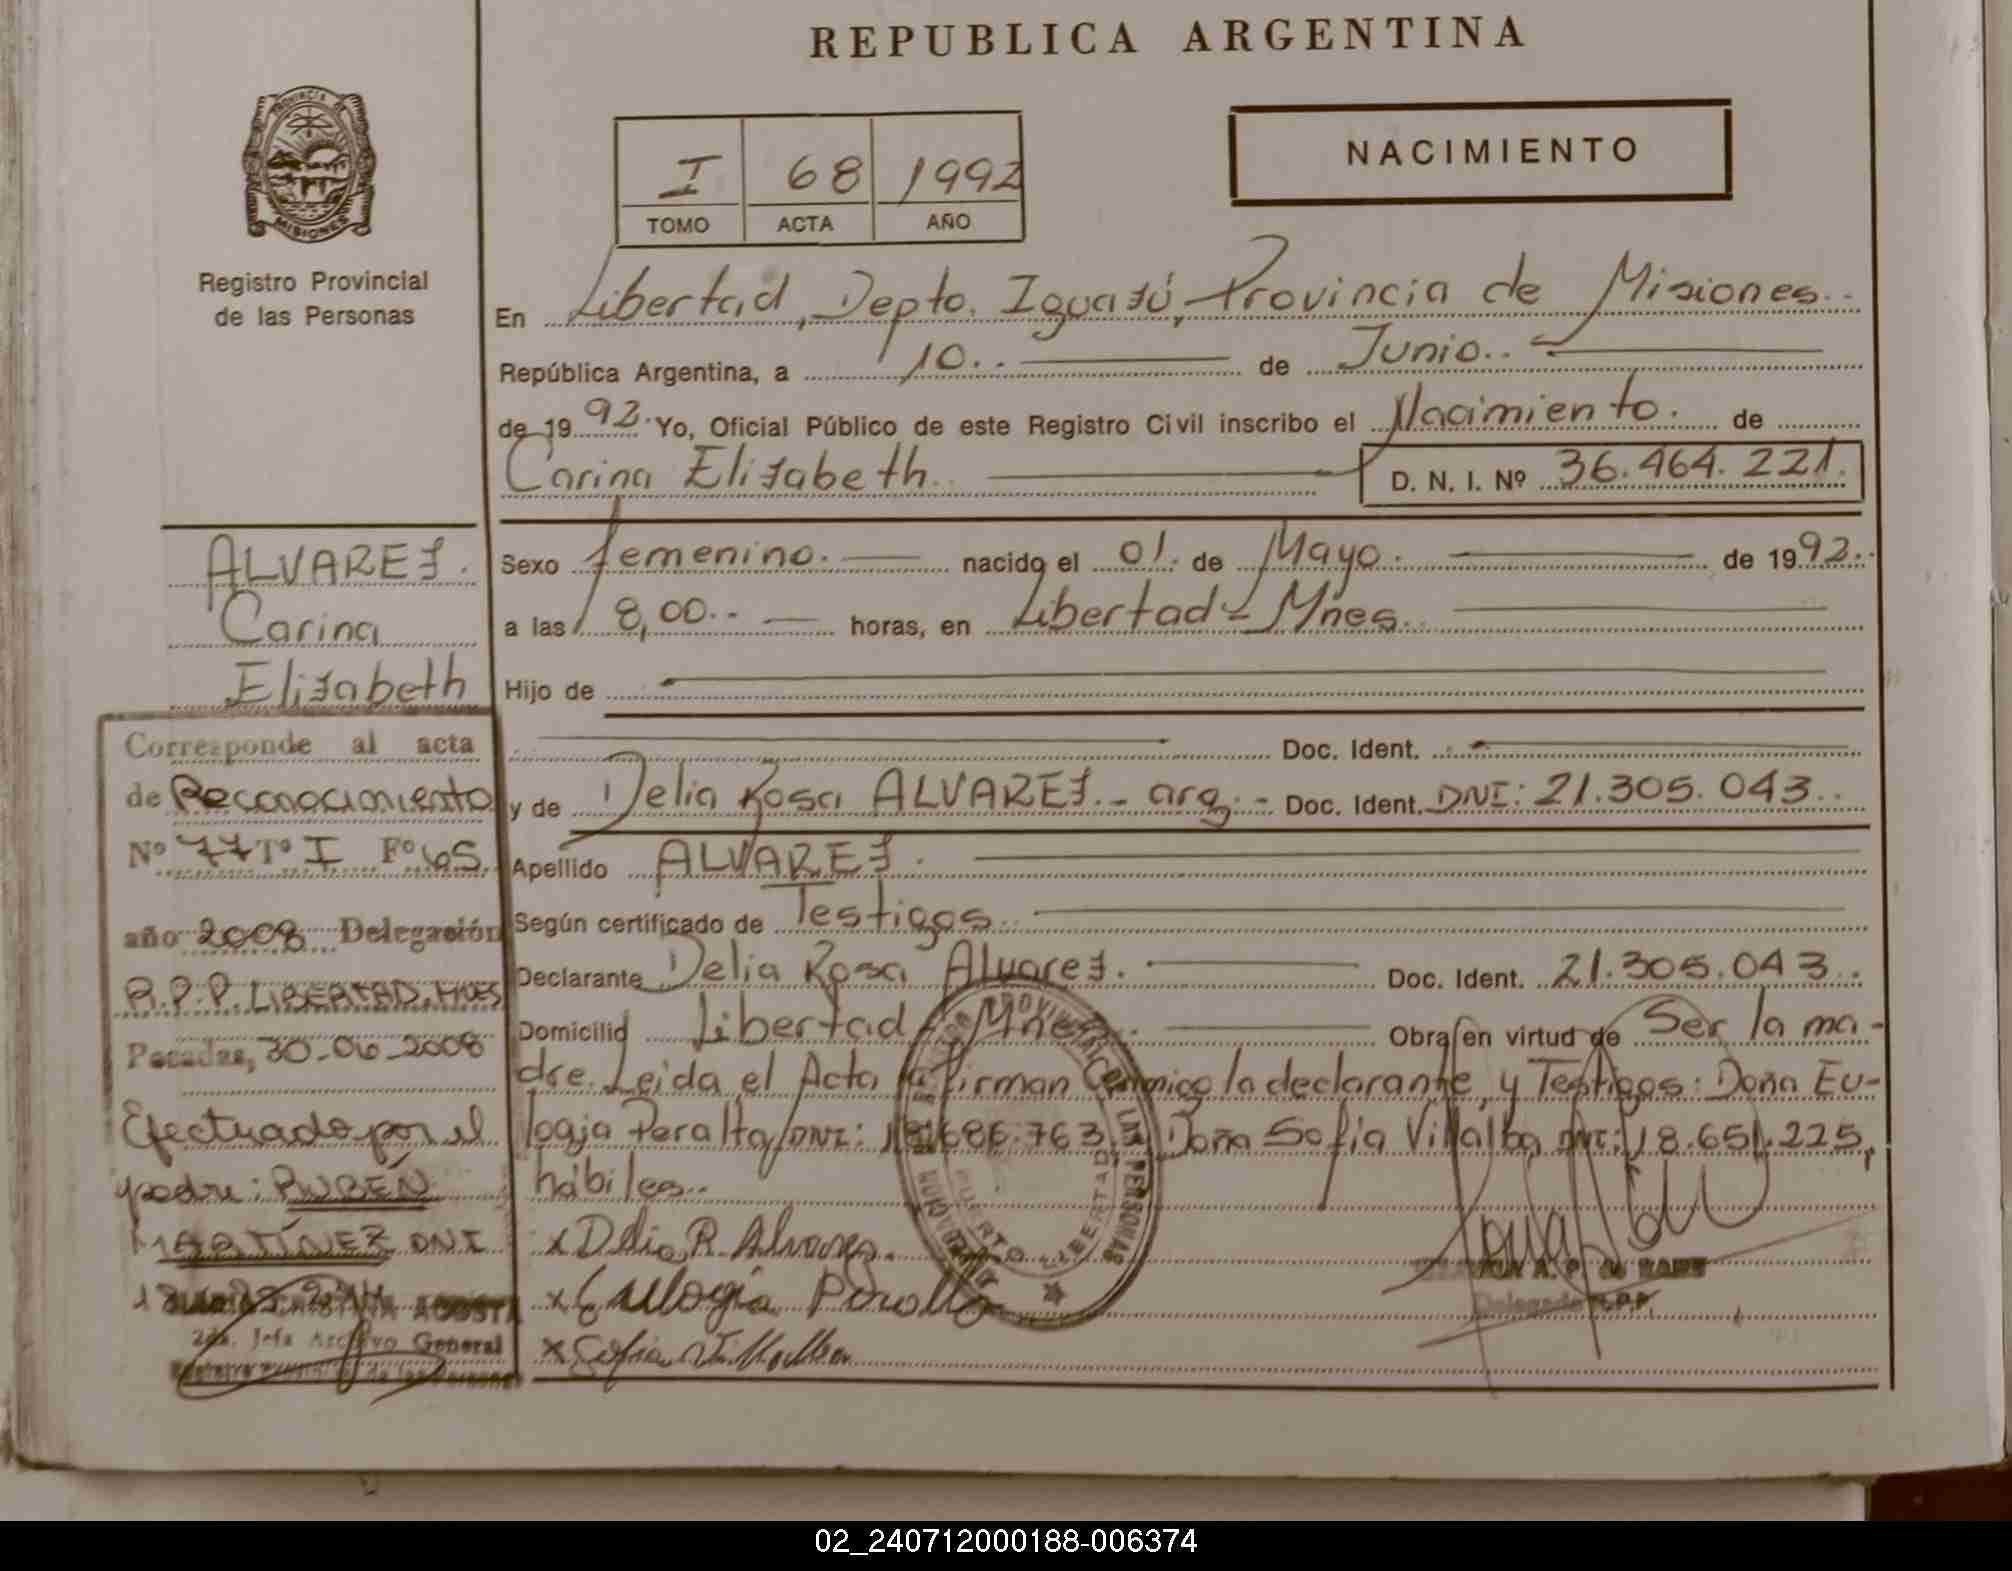 REPUBLICA ARGENTINA
PROVINCIA DE
MISIONES
Registro Provincial
de las Personas
I 68 1992
TOMO ACTA AÑO
NACIMIENTO
En Libertad, Depto. Iguazú, Provincia de Misiones..
República Argentina, a 10.. de Junio..
de 1992. Yo, Oficial Público de este Registro Civil inscribo el Nacimiento. de
Carina Elizabeth.. D. N. I. Nº 36.464.221.
Sexo femenino. nacido el 01. de Mayo. de 1992.
a las 8,00.. horas, en Libertad - Mnes.
Hijo de
Doc. Ident.
y de Delia Rosa ALVAREZ.- arg.- Doc. Ident. DNI: 21.305.043..
Apellido ALVAREZ.
Según certificado de Testigos..
Declarante Delia Rosa Alvarez. Doc. Ident. 21.305.043..
Domicilio Libertad - Mnes. Obra en virtud de Ser la ma-
dre. Leida el Acta la firman conmigo la declarante y Testigos: Doña Eu-
logia Peralta DNI: 686.763. Doña Sofia Villalba DNI: 18.651.225,
hábiles..
x Delia R. Alvarez.
x Eulogia Peralta
x Sofia Villalba
PUERTO LIBERTAD
DE LAS PERSONAS
Delegada R.P.P.
ALVAREZ.
Carina
Elizabeth
Corresponde al acta
de Reconocimiento
Nº 77 Tº I Fº 65.
año 2008 Delegación
R.P.P. LIBERTAD. MNES
Posadas, 30-06-2008
Efectuado por el
padre: RUBÉN
MARTÍNEZ DNI
ACOSTA
2da. Jefa Archivo General
Registro Provincial de las Personas
02_240712000188-006374